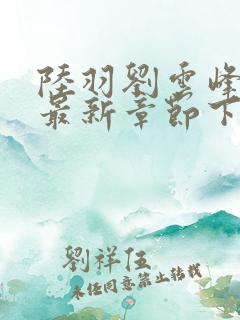 陸羽劉雲峰
最新章節下
劉祥伍
未經同意禁止轉載